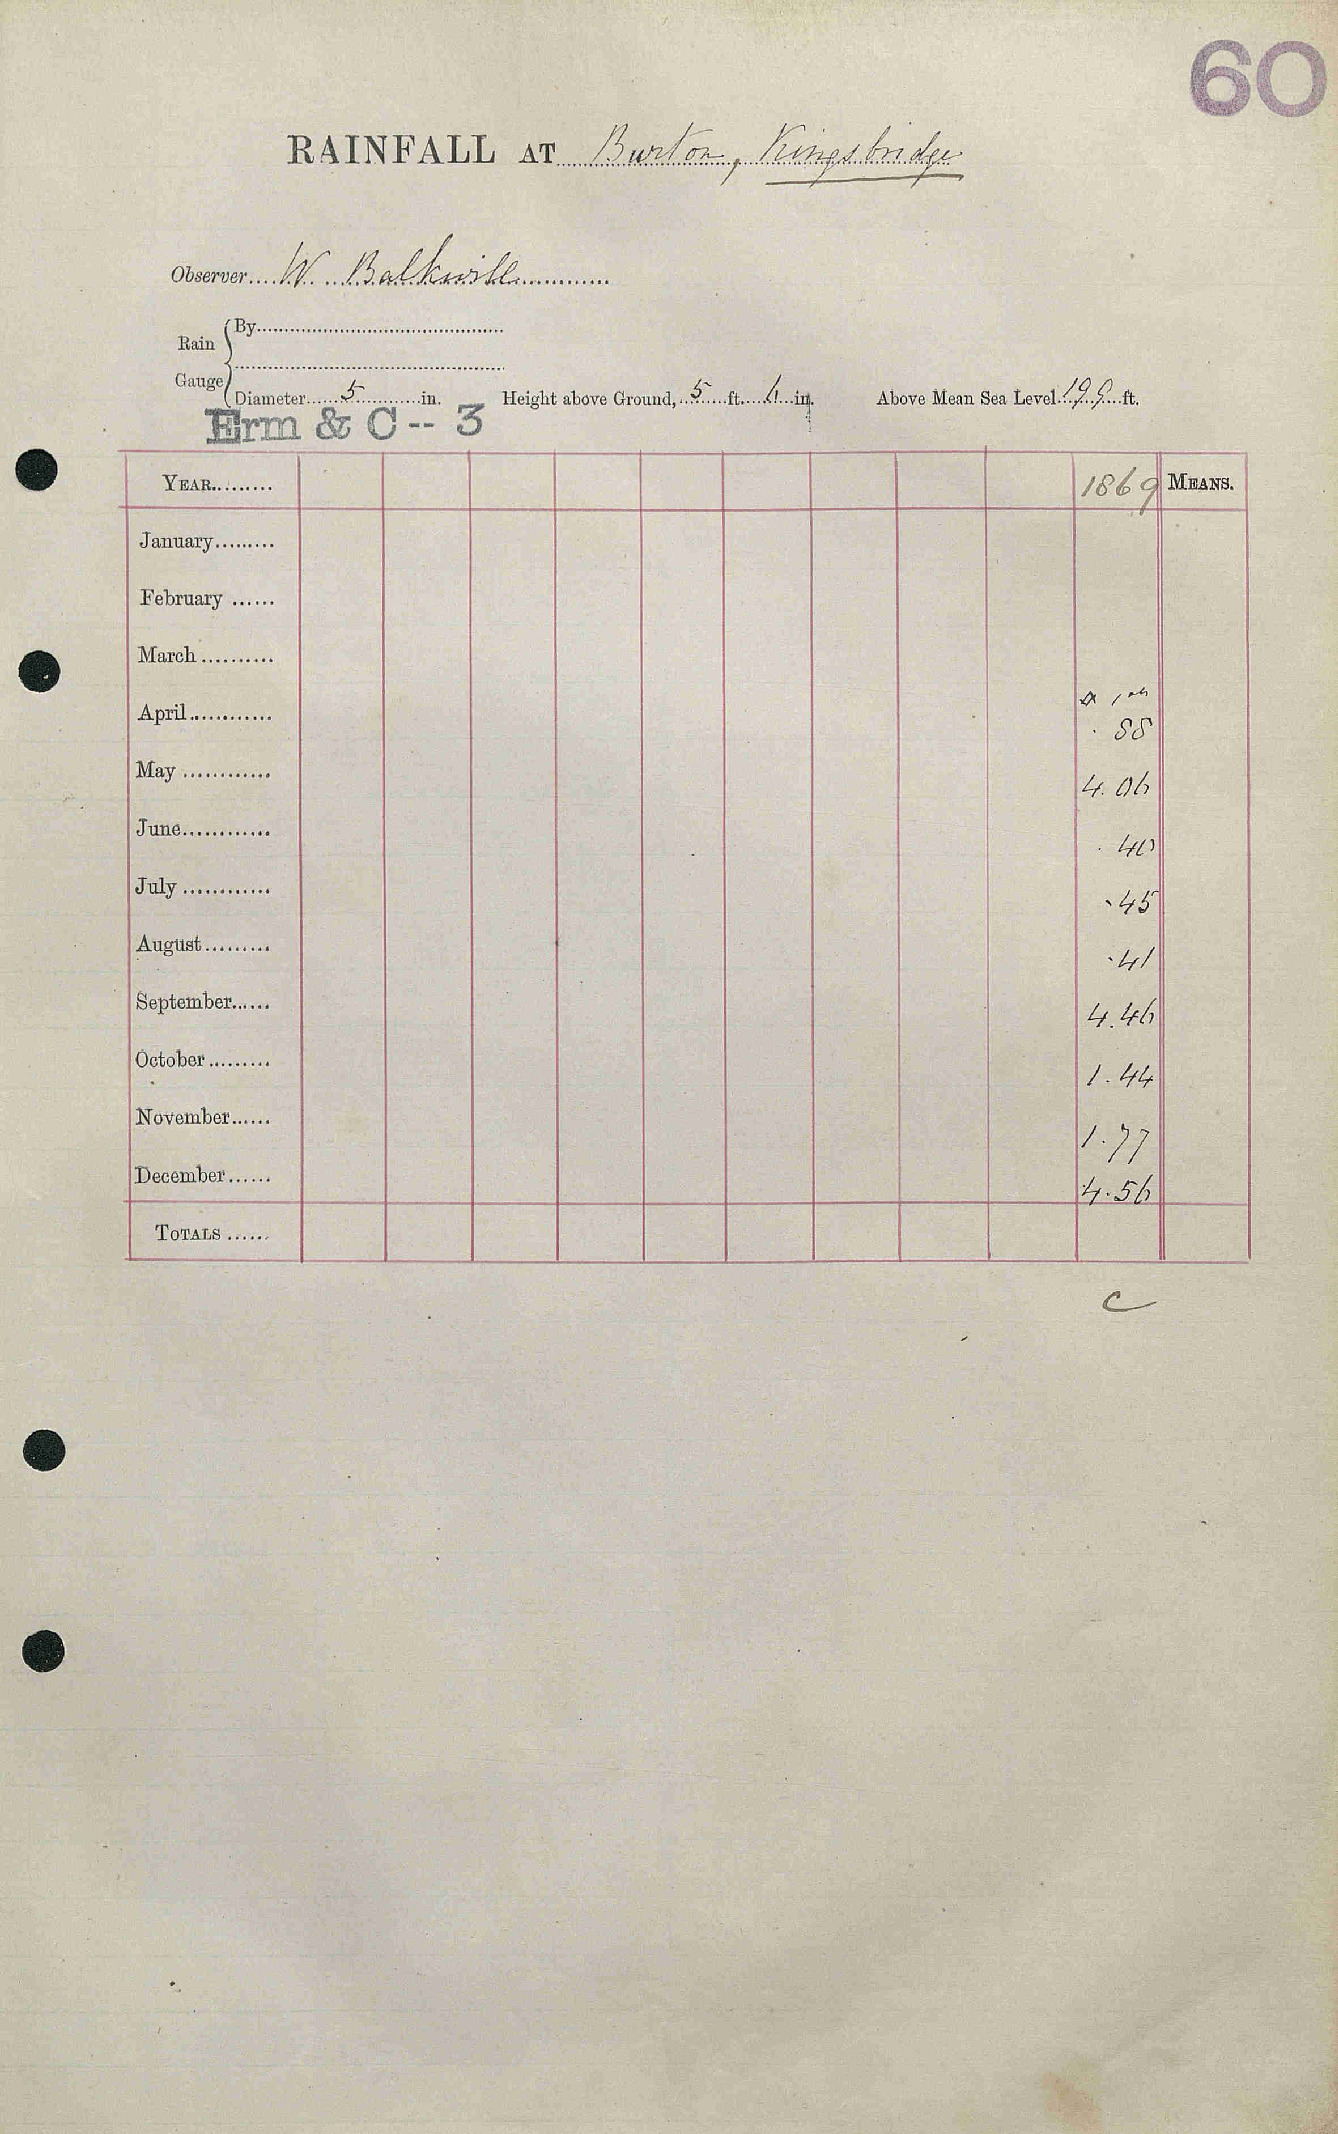 60
RAINFALL AT Burton, Kingsbridge
Observer....W. Balkwill
Rain Gauge { By
Diameter 5 in. Height above Ground, 5 ft. 6 in. Above Mean Sea Level 199 ft.
Erm & C -- 3
YEAR......... 1869 MEANS.
January.........
February ......
March ..........
April............ .88
May ............ 4.06
June............ .40
July ............ .45
August ......... .41
September...... 4.46
October ......... 1.44
November...... 1.77
December...... 4.56
TOTALS ......
C